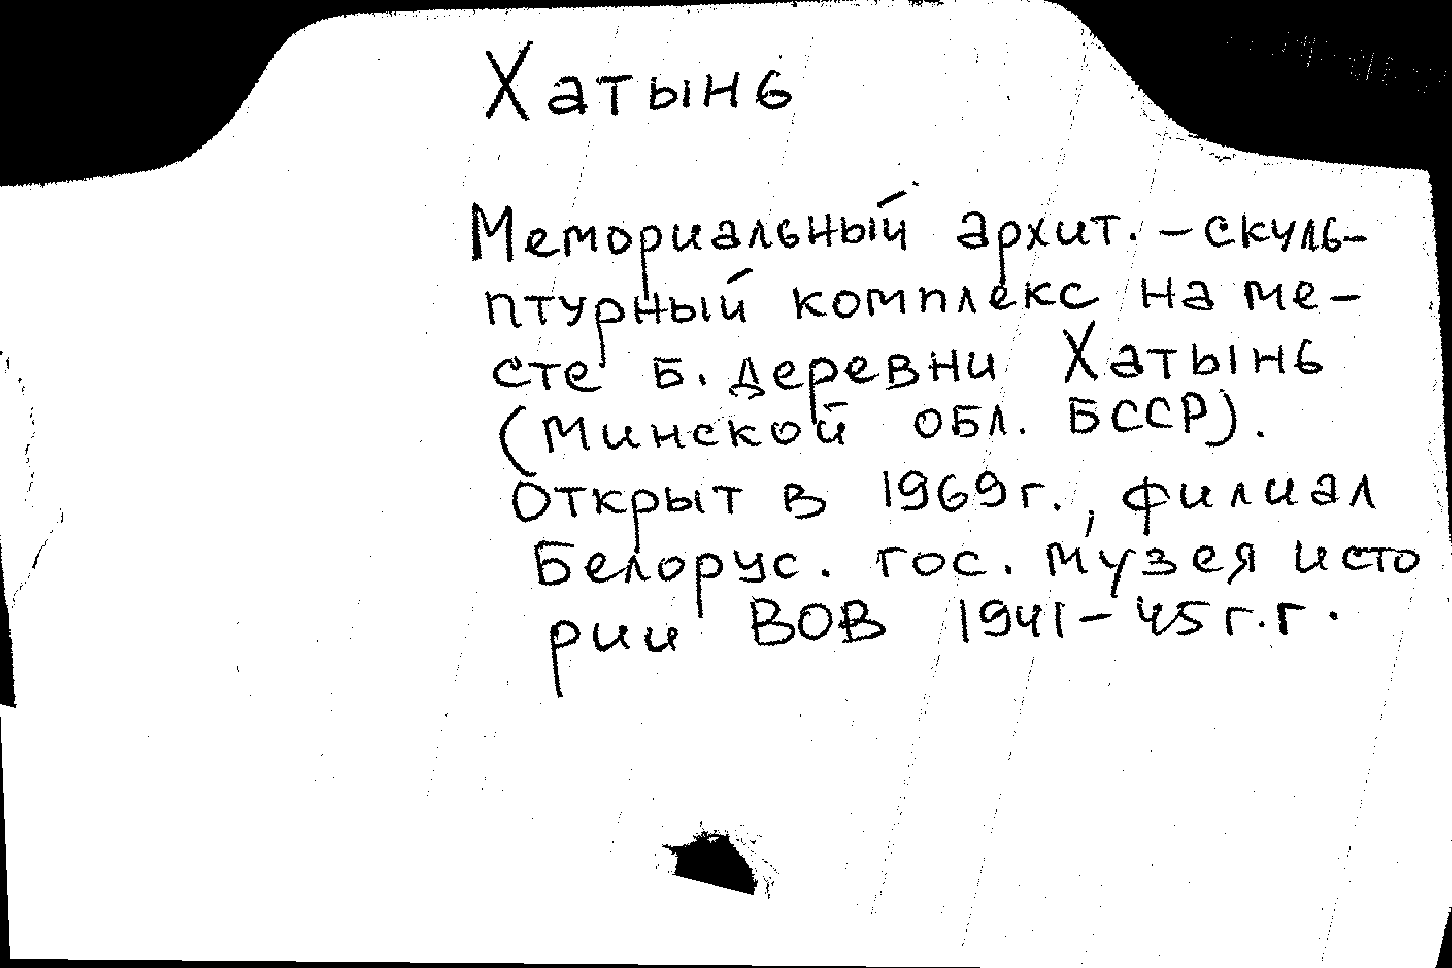 Хатынь
Мемориальный архит. - скуль-
птурный комплекс на ме-
сте б. деревни Хатынь
(Минской обл. БССР).
Открыт в 1969 г., филиал
Белорус. гос. музея исто
рии ВОВ 1941-45 г.г.